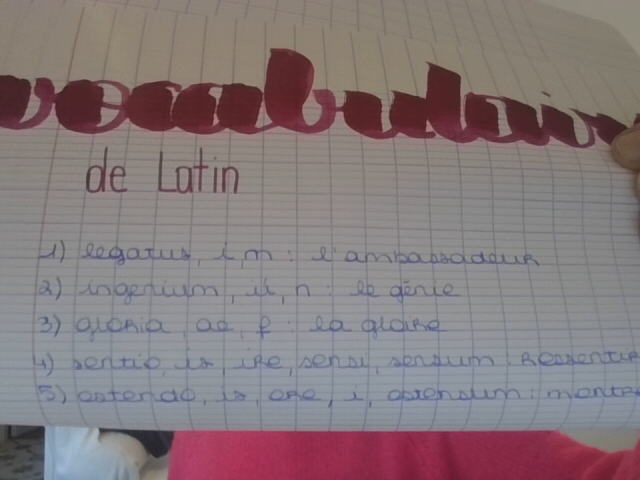 vocabulair
de Latin
1) legatus, i, m : l'ambassadeur
2) ingenium, ii, n : le génie
3) gloria, ae, f : la gloire
4) sentio, is, ire, sensi, sensum : Ressentir
5) ostendo, is, ere, i, ostensum : montre